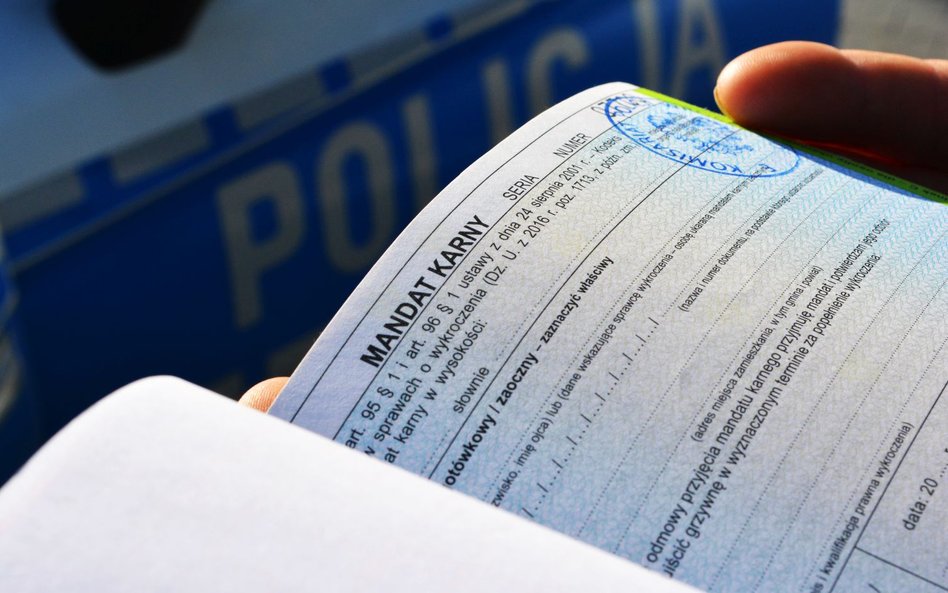 POLICJA
MANDAT KARNY SERIA NUMER
art. 95 § 1 i art. 96 § 1 ustawy z dnia 24 sierpnia 2001 r. – Kodeks
w sprawach o wykroczenia (Dz. U. z 2016 r. poz. 1713, z późn. zm.
at karny w wysokości:
słownie
otówkowy / zaoczny – zaznaczyć właściwy
zwisko, imię ojca) lub (dane wskazujące sprawcę wykroczenia – osobę ukaraną mandatem karnym
(nazwa i numer dokumentu, na podstawie którego
(adres miejsca zamieszkania, w tym gmina i powiat)
odmowy przyjęcia mandatu karnego przyjmuję mandat i potwierdzam jego odbiór
uiścić grzywnę w wyznaczonym terminie za popełnienie wykroczenia:
is i kwalifikacja prawna wykroczenia)
data: 20